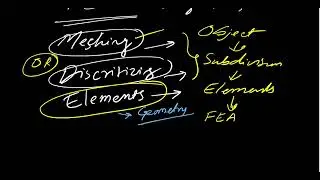 Meshing
OR
Discritizing
Elements
Geometry
Object
Subdivision
Elements
FEA